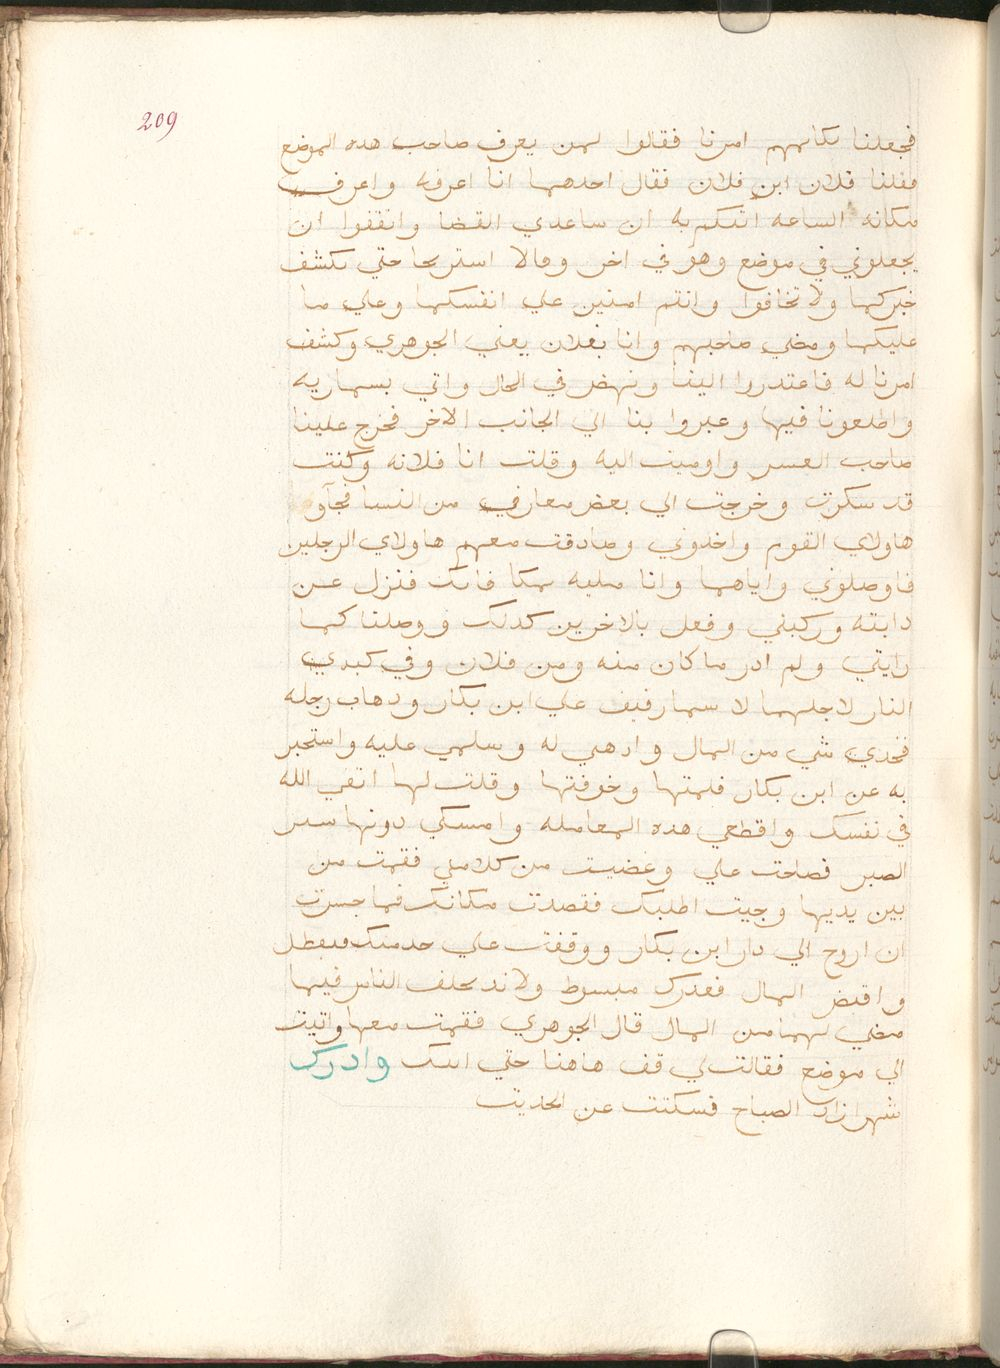 209
فجعلنا نكاتمهم امرنا فقالوا لمن يعرف صاحب هده الموضع
فقلنا فلان ابن فلان فقال احدهما انا اعرفه واعرف
مكانه الساعه اتيكم به ان ساعدني القضا واتفقوا ان
يجعلوني في موضع وهو في اخر وقالا استريحا حتي نكشف
خبركما ولا تخافوا وانتم امنين علي انفسكما وعلي ما
عليكما ومضي صاحبهم وانا بفلان يعني الجوهري وكشف
امرنا له فاعتدروا الينا ونهض في الحال واتي بسماريه
واطلعونا فيها وعبروا بنا الي الجانب الاخر فخرج علينا
صاحب العسس واوميت اليه وقلت انا فلانه وكنت
قد سكرت وخرجت الي بعض معارفي من النسا فجآو
هاولاي القوم واخدوني وصادفت معهم هاولاي الرجلين
فاوصلوني واياهما وانا مليه بمكافاتك فنزل عن
دابته وركبني وفعل بالاخرين كدلك ووصلنا كما
رايتي ولم ادر ما كان منه ومن فلان وفي كبدي
النار لاجلهما لا سما رفيق علي ابن بكار ودهاب رحله
فخدي شي من المال وادهبي له وسلمي عليه واستخبر
به عن ابن بكار فلمتها وخوفتها وقلت لها اتقي الله
في نفسك واقطعي هده المعامله وامسكي دونها ستر
الصبر فصاحت علي وغضبت من كلامي فقمت من
بين يديها وجيت اطلبك فقصدت مكانك فما جسرت
ان اروح الي دار ابن بكار ووقفت علي خدمتك فتفضل
واقبض المال فعدرك مبسوط ولا بد يخلف الناس فيما
مضي لهما من المال قال الجوهري فقمت معها واتيت
الي موضع فقالت لي قف هاهنا حتي اتيك وادرك
شهرازاد الصباح فسكتت عن الحديت